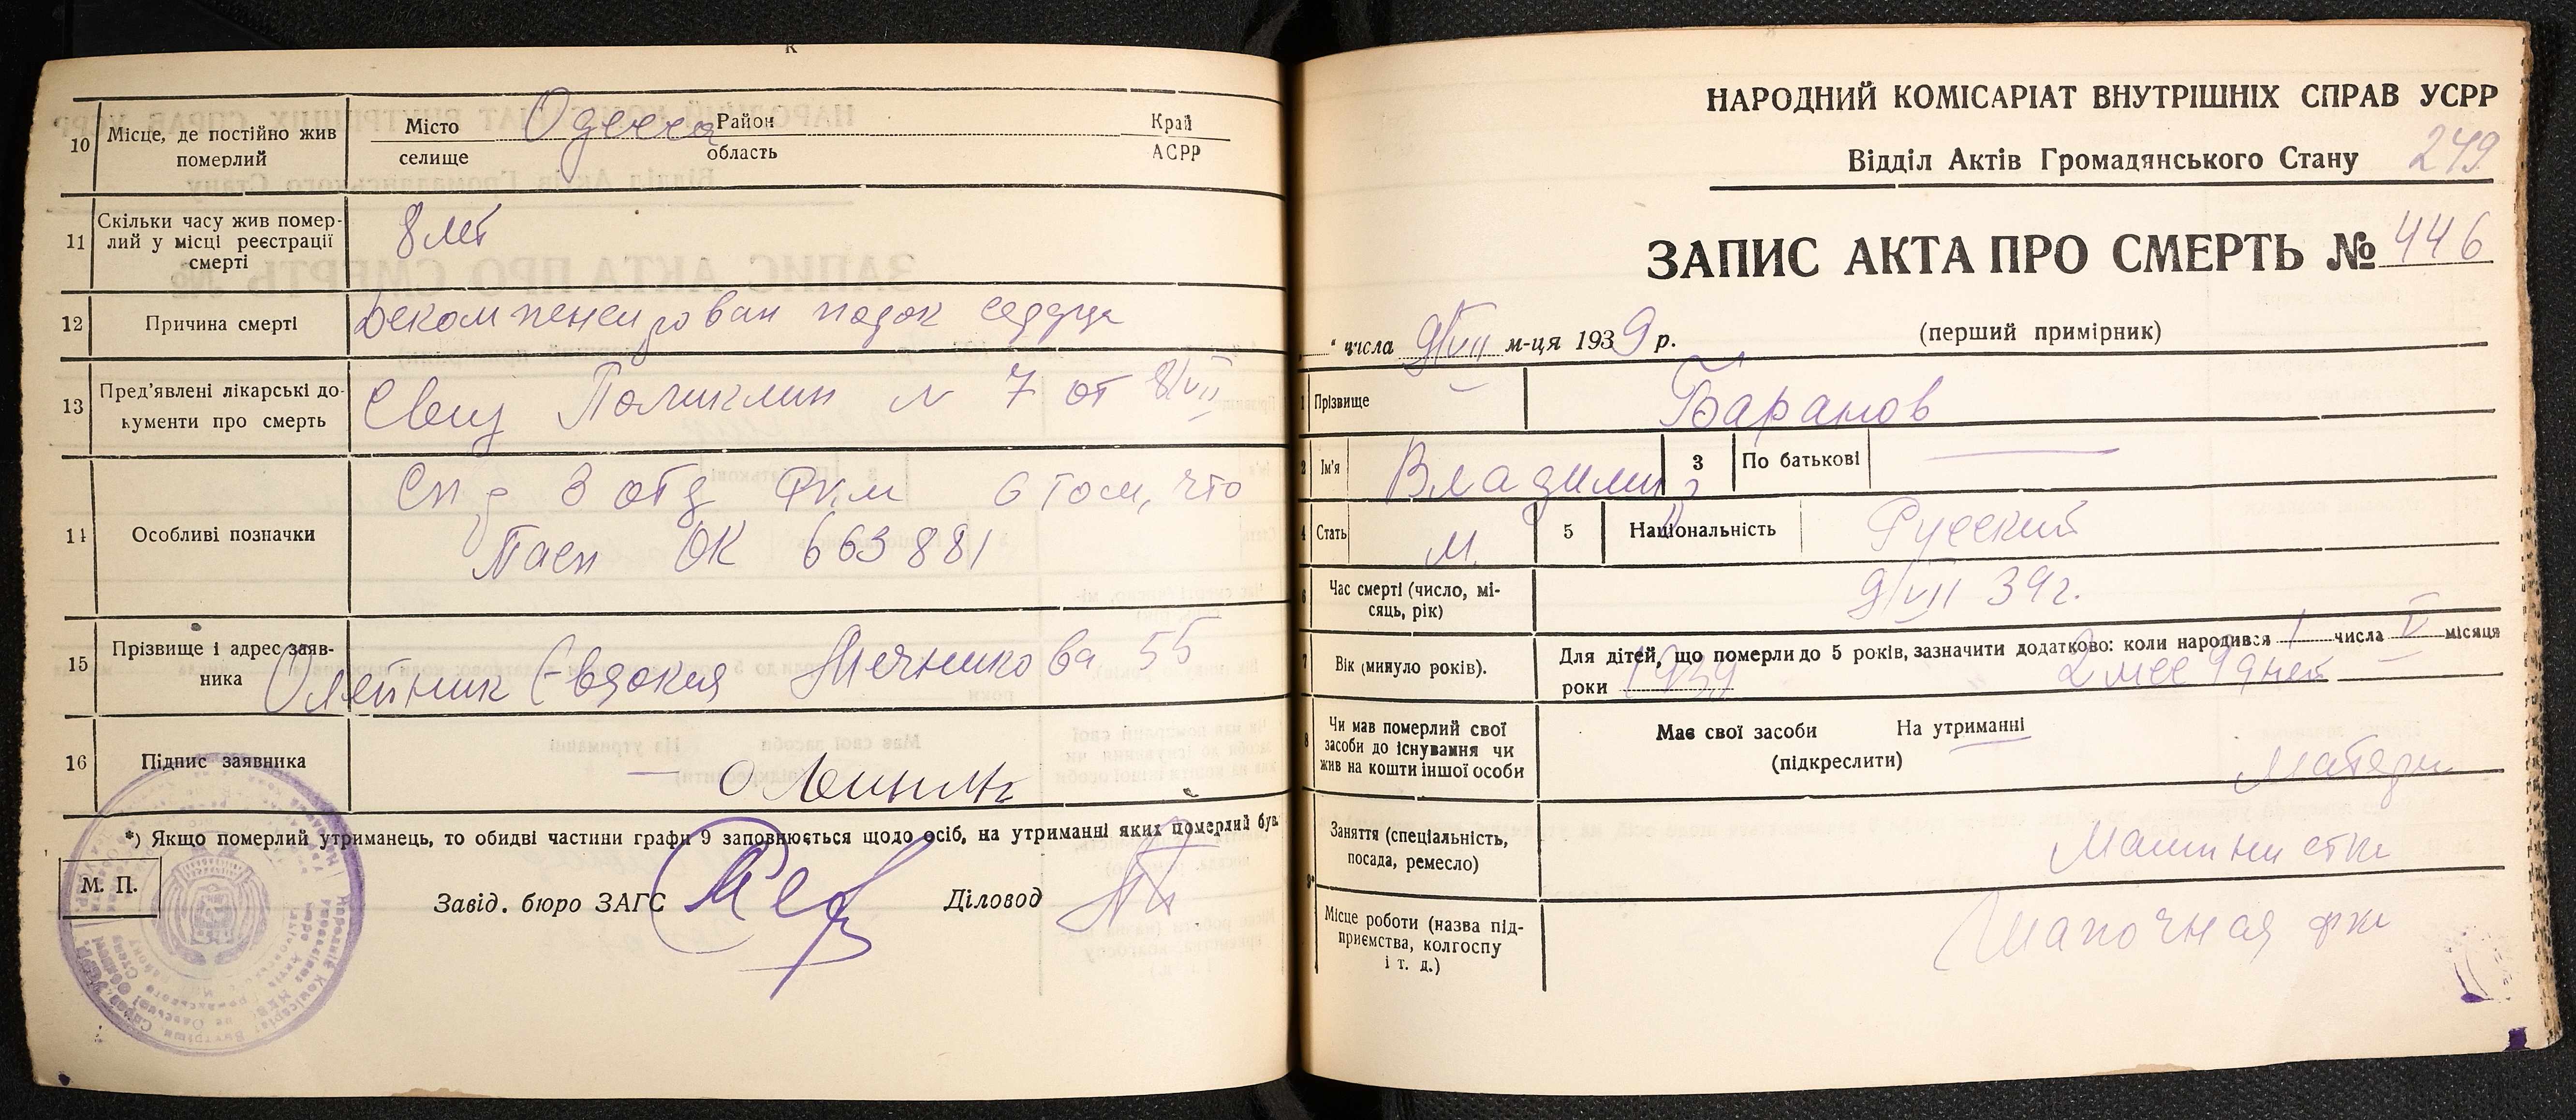 К
10 Місце, де постійно жив померлий
Місто Одесса Район Край
селище область АСРР
11 Скільки часу жив помер-
лий у місці реєстрації
смерті
8 лет
12 Причина смерті Декомпенсирован порок сердца
13 Пред'явлені лікарські до-
кументи про смерть
Свид Поликлин N 7 от 8/VII
14 Особливі позначки
Сп 3 отд РКМ о том, что
Пасп ОК 663881
15 Прізвище і адрес заяв-
ника
Олейник Евдокия Мечникова 55
16 Підпис заявника
*) Якщо померлий утриманець, то обидві частини графи 9 заповнюється щодо осіб, на утриманні яких померлий був.
М. П.
Завід. бюро ЗАГС Діловод
НАРОДНИЙ КОМІСАРІАТ ВНУТРІШНІХ СПРАВ УСРР
Відділ Актів Громадянського Стану 249
ЗАПИС АКТА ПРО СМЕРТЬ № 446
" числа 9/VII м-ця 1939 р. (перший примірник)
1 Прізвище Баранов
2 Ім'я Владимир 3 По батькові —
4 Стать М. 5 Національність Русский
6 Час смерті (число, мі-
сяць, рік)
9/VII 39 г.
7 Вік (минуло років).
Для дітей, що померли до 5 років, зазначити додатково: коли народився 1 числа V місяця
роки 1939 2 мес 9 дней
8 Чи мав померлий свої
засоби до існування чи
жив на кошти іншої особи
Має свої засоби На утриманні
(підкреслити) матери
9* Заняття (спеціальність,
посада, ремесло)
Машинистка
Місце роботи (назва під-
приємства, колгоспу
і т. д.)
Шапочная фка